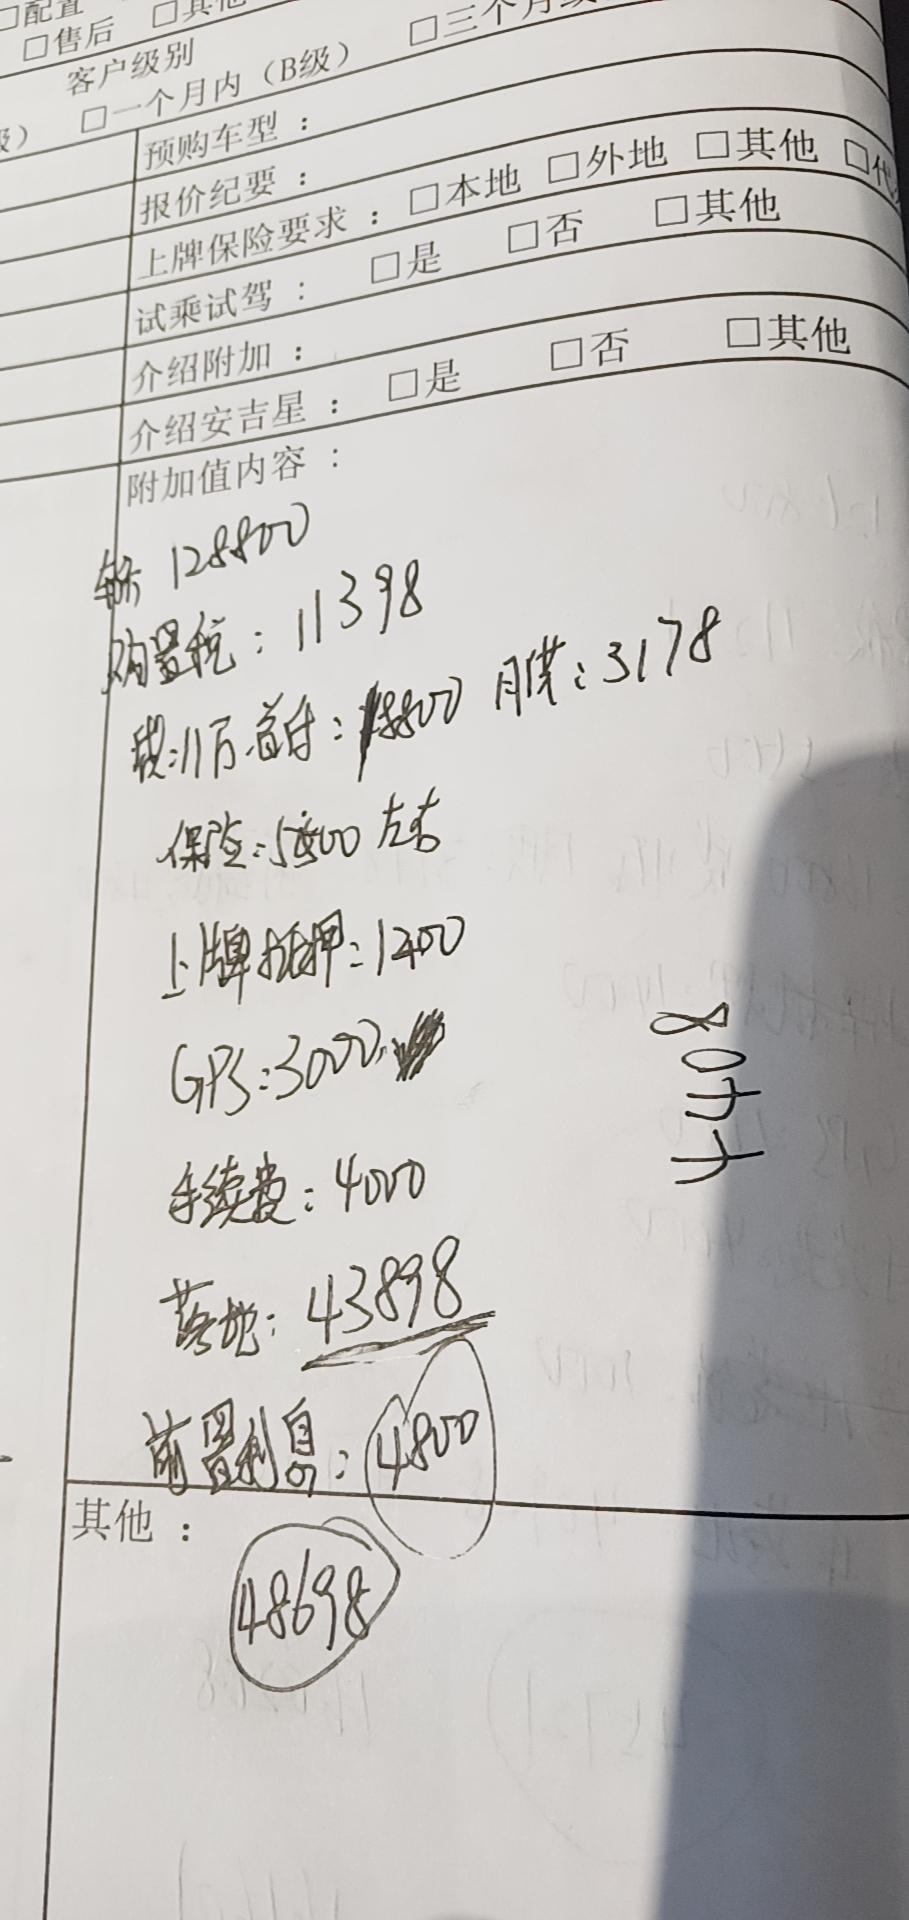 □配置 □其他
□售后
客户级别
级） □一个月内（B级） □三个月
预购车型：
报价纪要：
上牌保险要求：□本地 □外地 □其他
试乘试驾： □是 □否 □其他
介绍附加：
介绍安吉星： □是 □否 □其他
附加值内容：
128800
购置税：11398
贷：11万 首付：18800 月供：3178
保险：5500 左右
上牌抵押：1200
GPS：3000
手续费：4000
落地：43898
前置利息：4800
其他：
48698
8044